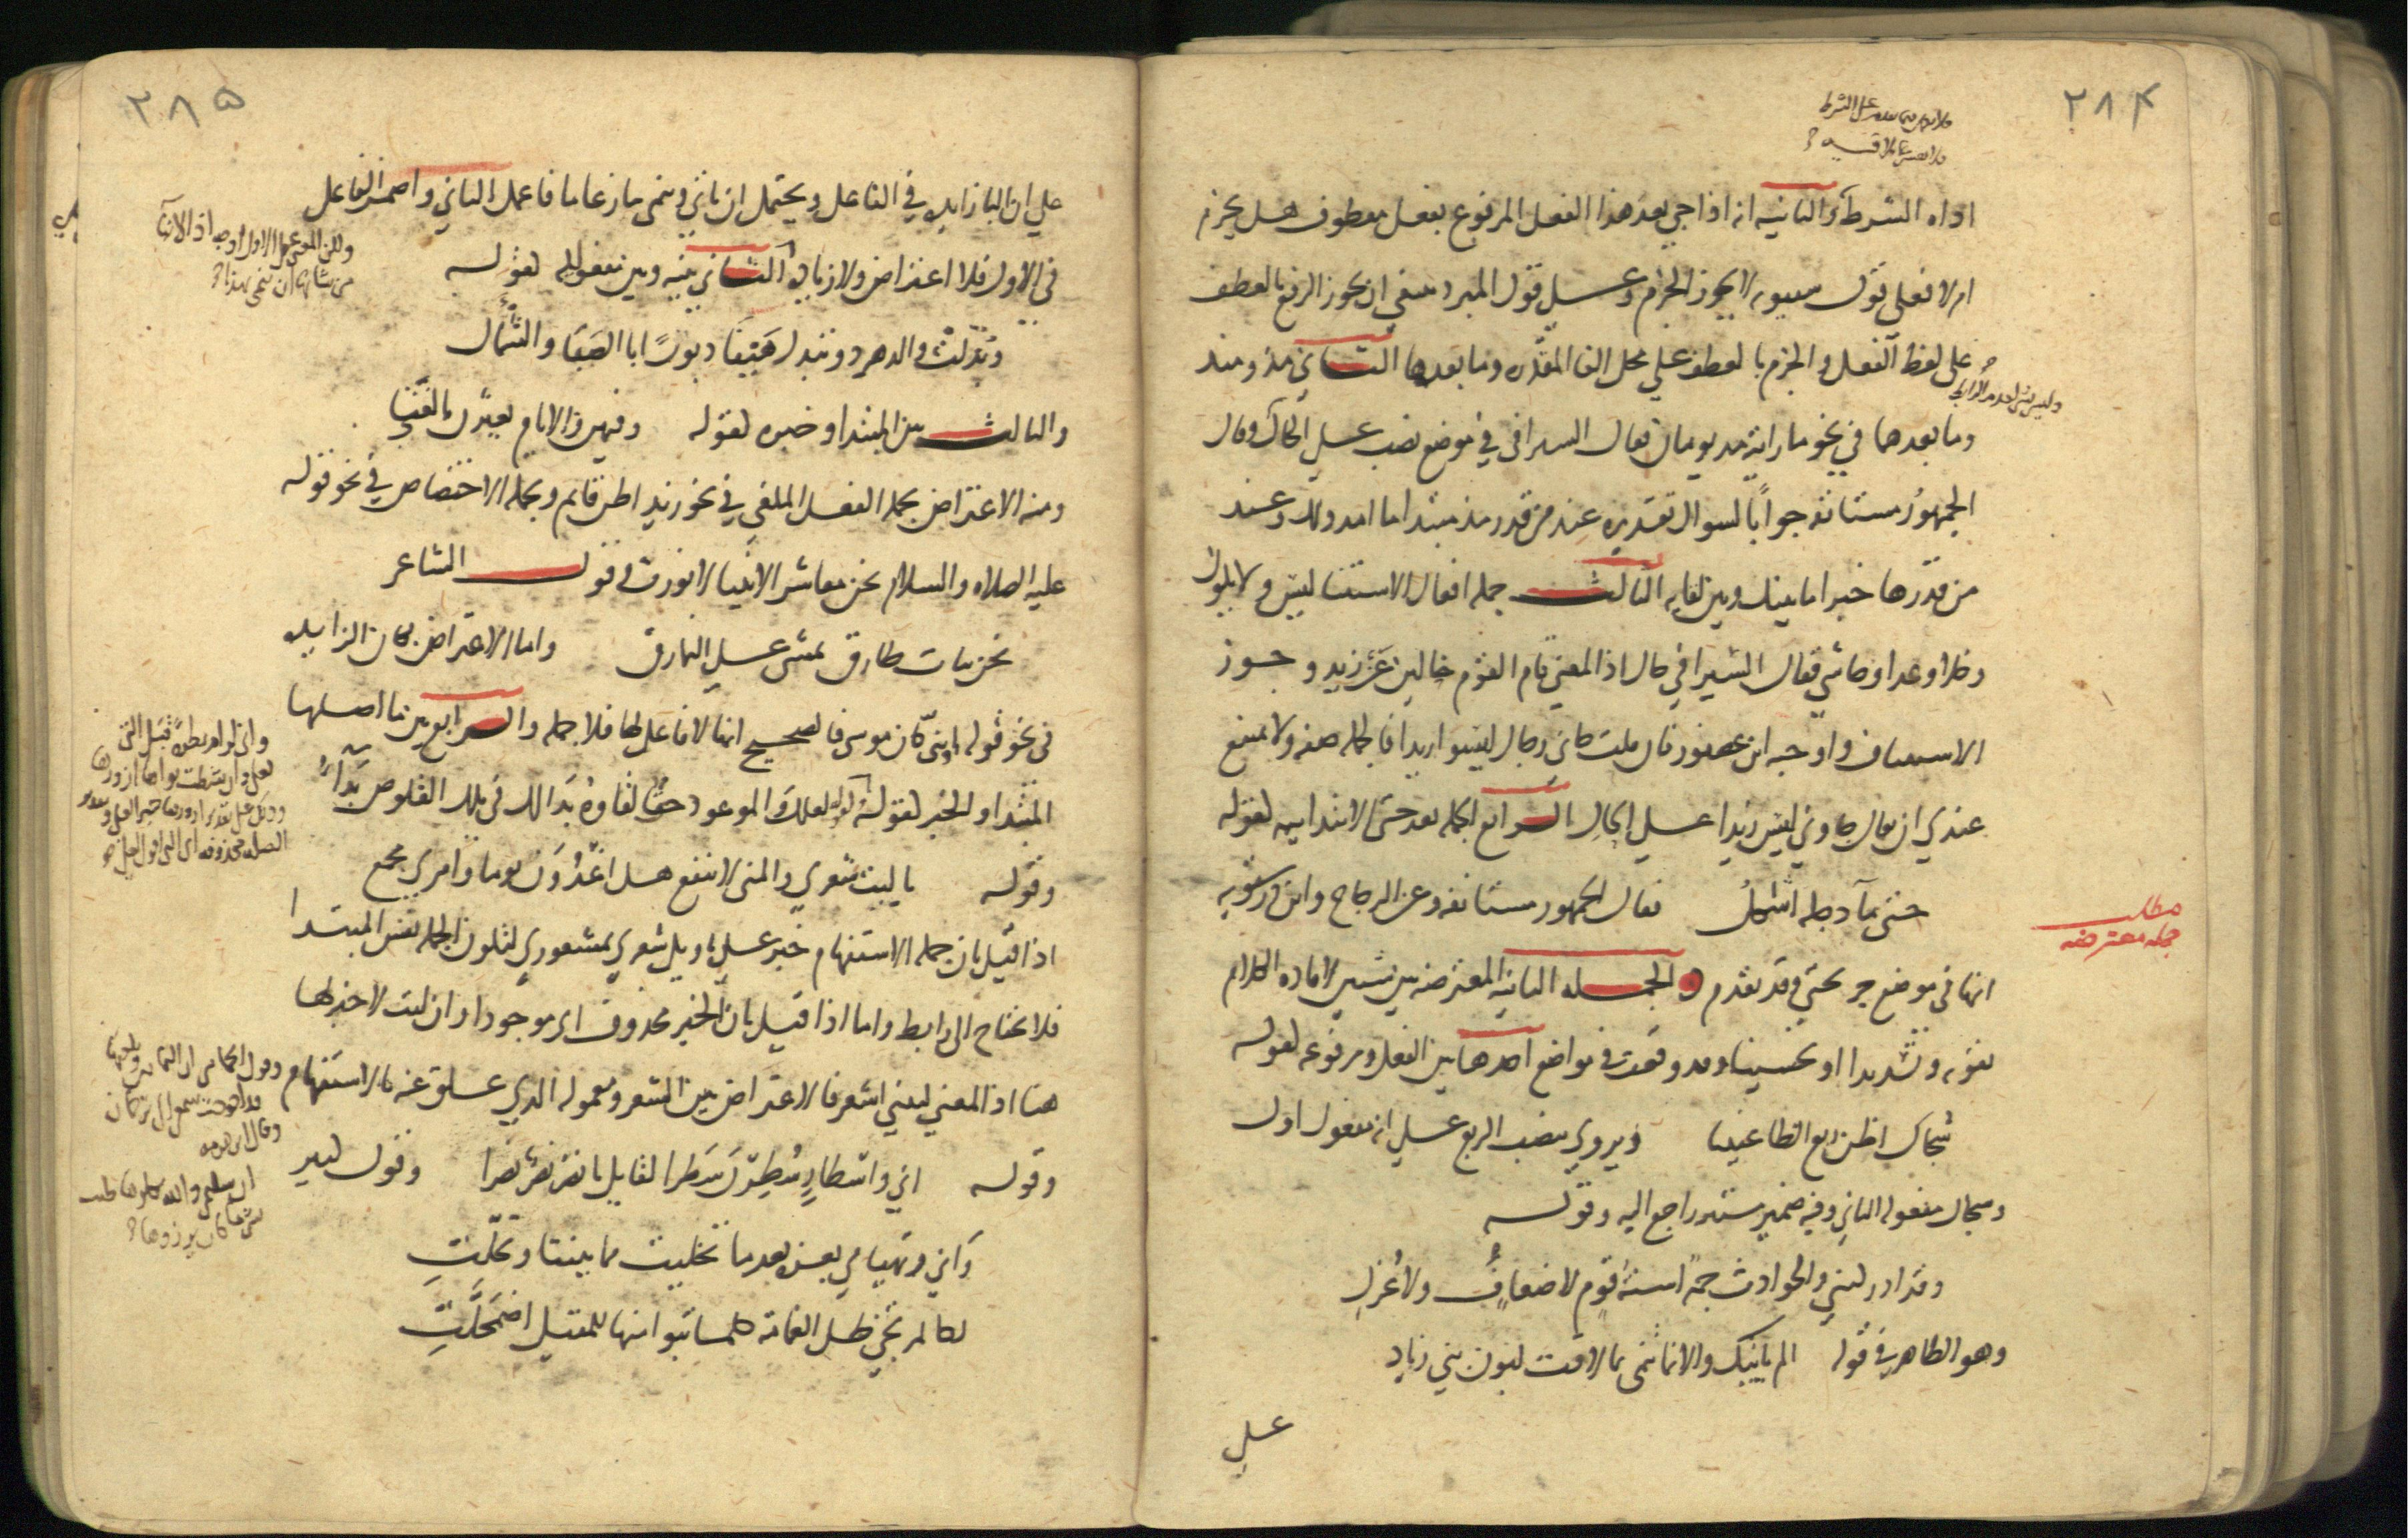 ٢٨۴
اداه الشرط والثانيه انه اذا جي بعد هذا الفعل المرفوع بفعل معطوف هل يجزم
ام لا فعلى قول سيبويه لا يجوز الجزم وعلى قول المبرد ينبغي ان يجوز الرفع بالعطف
على لفظ الفعل والجزم بالعطف علي محل الفا المقدره وما بعدها الثاني مذ ومنذ
وليس بشي لعدم الرابط
وما بعدهما في نحو ما رايته مذ يومان فقال السيرافي في موضع نصب علي الحال وقال
الجمهور مستانفه جوابًا لسوال تقديره عند من قدر مذ مبتدا ما امد ذلك وعند
من قدرها خبرا ما بينك وبين لقايه الثالث جمله افعال الاستثنا ليس ولا يكون
وخلا وعدا وحاشي فقال السيرافي حال اذ المعني قام القوم خالين عن زيد وجوز
الاستيناف واوجبه ابن عصفور فان قلت جاني رجال ليسوا زيدا فالجمله صفه ولا يمتنع
عندي ان يقال جاوني ليس زيدا علي الحال الرابع الجمله بعد حتى الابتداييه لقوله
حتى ما دجله اشكل فقال الجمهور مستانفه وعن الزجاج وابن درستويه
مطلب
جمله معترضه
انها في موضع جر بحتي وقد تقدم والجمله الثانيه المعترضه بين شيين لافاده الكلام
تقويه وتشديدا او تحسينا وقد وقعت في مواضع احدها بين الفعل ومرفوعه لقوله
شجاك اظن ربع الظاعنينا ويروي بنصب الربع علي انه مفعول اول
وشجاك مفعوله الثاني وفيه ضمير مستتر راجع اليه وقوله
وقد ادركتني والحوادث جمة اسنة قوم لا ضعاف ولا عزل
وهو الظاهر في قوله الم ياتيك والانبا تنمى بما لاقت لبون بني زياد
علي
٢٨۵
علي ان البا زايده في الفاعل ويحتمل ان ياتي وتنمى تنازعا ما فاعمل الثاني واضمر الفاعل
في الاول فلا اعتراض ولا زياده الثاني بينه وبين مفعوله لقوله
ولكن المعنى على الاول اوجه اذ الانبا
من شانها ان تنمى بهذا
وبدلت والدهر ذو تبدل هيفا دبورًا بالصبا والشمال
والثالث بين المبتدا وخبره لقوله وفيهن والايام يعثرن بالفتي
ومنه الاعتراض بجمله الفعل الملغي في نحو زيد اظن قايم وبجمله الاختصاص في نحو قوله
عليه الصلاه والسلام نحن معاشر الانبيا لا نورث وقول الشاعر
نحن بنات طارق نمشي علي النمارق واما الاعتراض بكان الزايده
في نحو قوله او نبي كان موسى فالصحيح انها لا فاعل لها فلا جمله والرابع بين ما اصلهما
المبتدا والخبر لقوله لعلك والموعود حق لقاوه بدا لك في تلك القلوص بداء
وقوله يا ليت شعري والمنى لا تنفع هل اغدون يوما وامري مجمع
اذا قيل بان جمله الاستفهام خبر علي تاويل شعري بمشعوري لتكون الجمله نفس المبتدا
فلا تحتاج الى رابط واما اذا قيل بان الخبر محذوف اي موجود او ان ليت لا خبر لها
هنا اذ المعني ليتني اشعر فالاعتراض بين الشعر ومعموله الذي علق عنه بالاستفهام
وقوله اني واسطار سطرن سطرا لقايل يا نصر نصر نصرا وقول كثير
واني وتهيامي بعزه بعد ما تخليت مما بيننا وتخلت
لكالمرتجي ظل الغمامة كلما تبوا منها للمقيل اضمحلت
ان سليمى والله يكلوها ضنت
بشي ما كان يرزوها